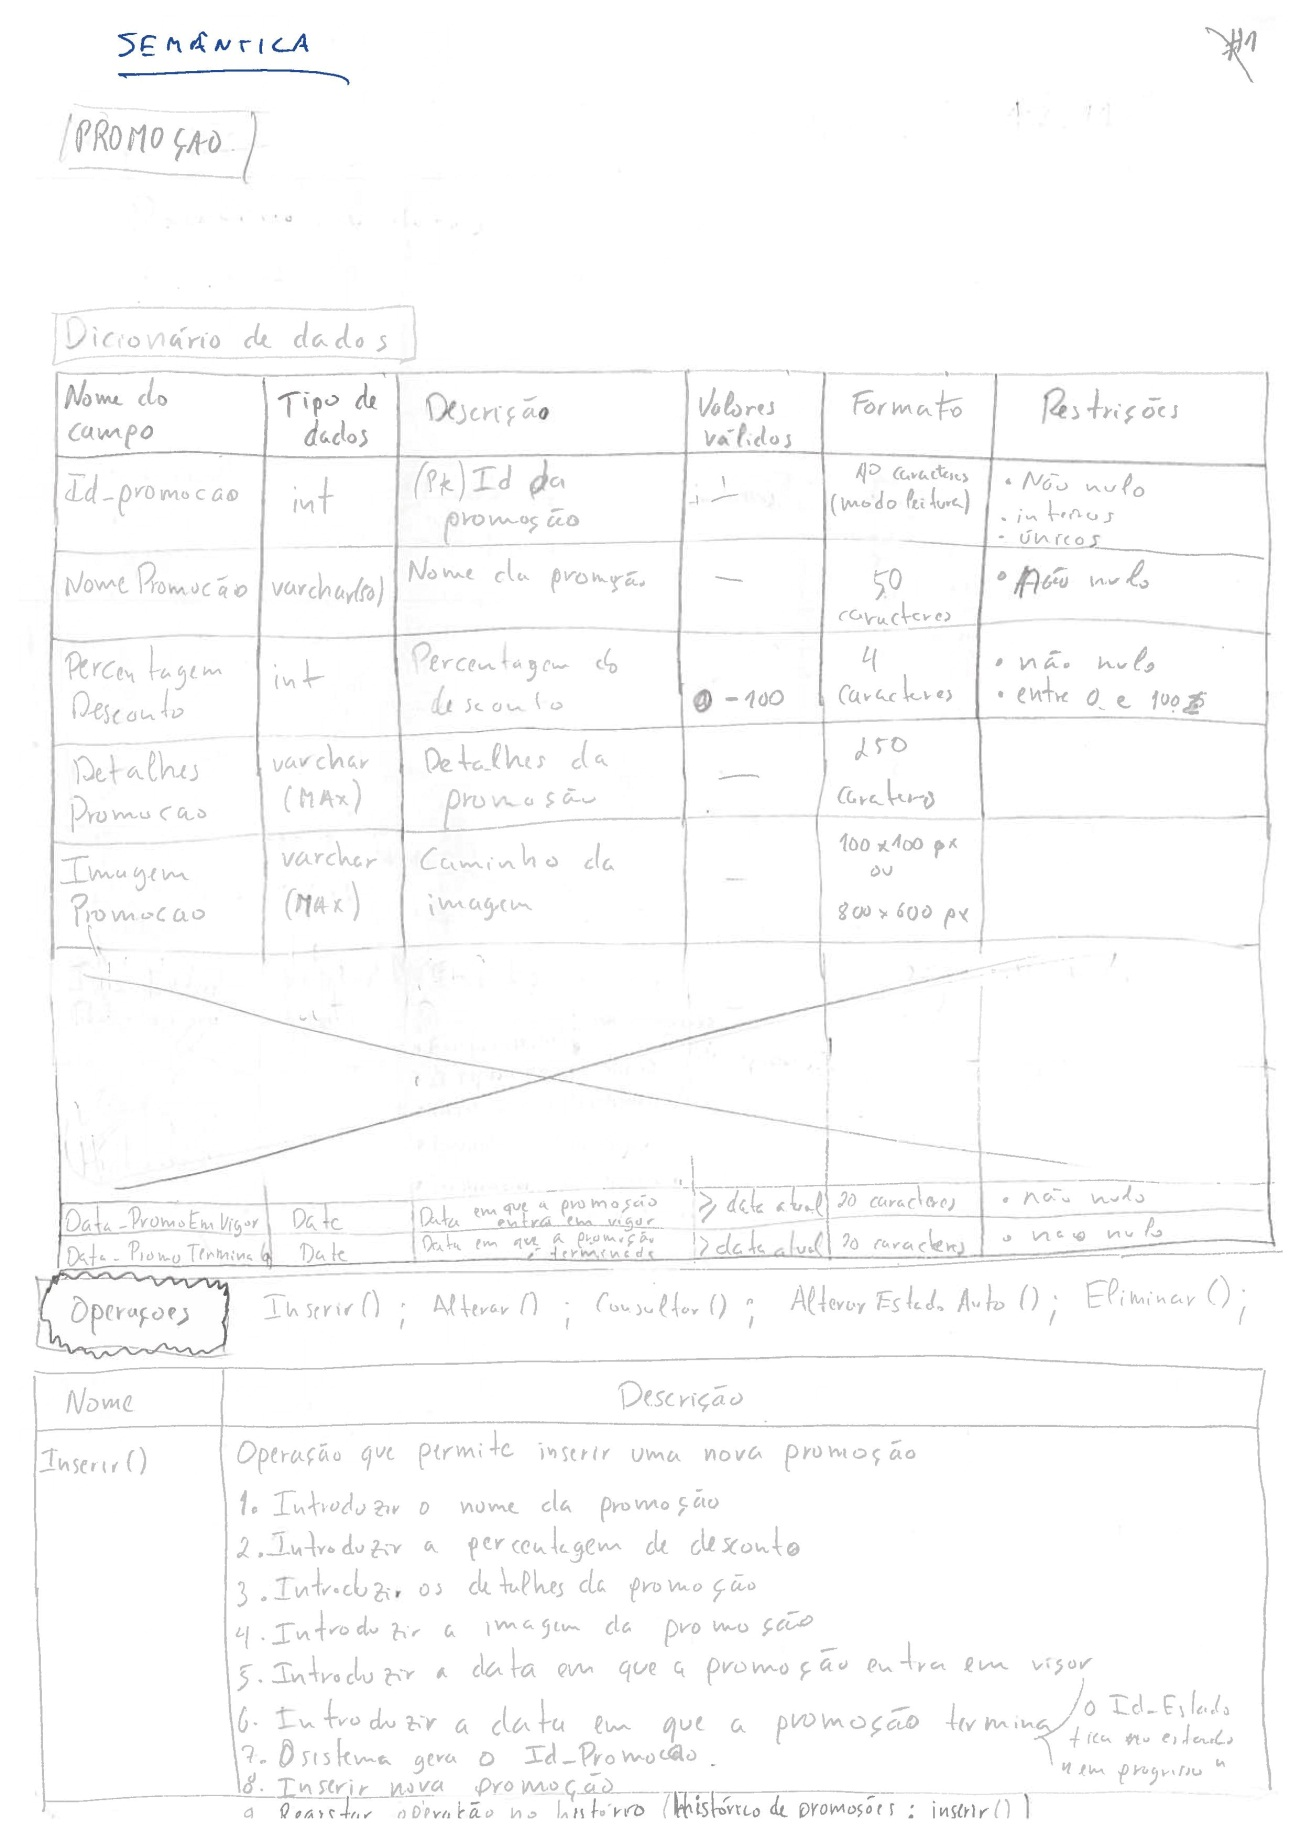 SEMÂNTICA
#1
PROMOÇAO
Dicionário de dados
Nome do campo | Tipo de dados | Descrição | Valores válidos | Formato | Restrições
Id_promocao | int | (Pk) Id da promoção | — | 10 caracteres (modo leitura) | • Não nulo • inteiros • únicos
Nome Promocão | varchar(50) | Nome da promoção | — | 50 caracteres | • Não nulo
Percentagem Desconto | int | Percentagem do desconto | 0 - 100 | 4 caracteres | • não nulo • entre 0 e 100
Detalhes Promocao | varchar (MAX) | Detalhes da promoção | — | 250 carateres
Imagem Promocao | varchar (MAX) | Caminho da imagem | — | 100 x 100 px ou 800 x 600 px
Data_PromoEmVigor | Date | Data em que a promoção entra em vigor | ≥ data atual | 20 caracteres | • não nulo
Data_PromoTermina | Date | Data em que a promoção é terminada | > data atual | 20 caracteres | • nao nulo
Operaçoes
Inserir() ; Alterar() ; Consultar() ; Alterar Estado Auto () ; Eliminar() ;
Nome | Descrição
Inserir()
Operação que permite inserir uma nova promoção
1. Introduzir o nome da promoção
2. Introduzir a percentagem de desconto
3. Introduzir os detalhes da promoção
4. Introduzir a imagem da promoção
5. Introduzir a data em que a promoção entra em vigor
6. Introduzir a data em que a promoção termina
o Id_Estado
fica no estado
"em progresso"
7. O sistema gera o Id_Promocao.
8. Inserir nova promoção
9. Registar operação no histórico (Histórico de promoções : inserir())